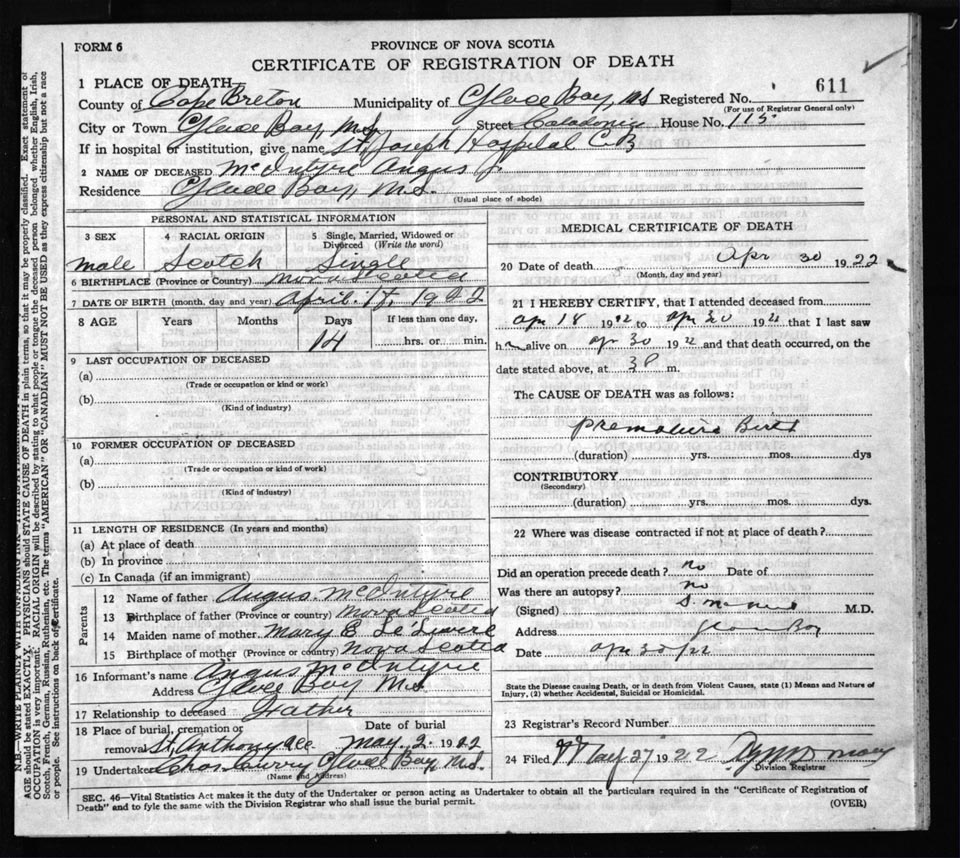 FORM 6
PROVINCE OF NOVA SCOTIA
CERTIFICATE OF REGISTRATION OF DEATH
1 PLACE OF DEATH
611
County of Cape Breton Municipality of Glace Bay, NS Registered No.
(For use of Registrar General only)
City or Town Glace Bay, N.S. Street Caledonia House No. 115
If in hospital or institution, give name St. Joseph Hospital C.B
2 NAME OF DECEASED McIntyre Angus J.
Residence Glace Bay, N.S.
(Usual place of abode)
PERSONAL AND STATISTICAL INFORMATION
3 SEX 4 RACIAL ORIGIN 5 Single, Married, Widowed or Divorced (Write the word)
male Scotch Single
6 BIRTHPLACE (Province or Country) Nova Scotia
7 DATE OF BIRTH (month, day and year) April 17, 1922
8 AGE Years Months Days If less than one day,
14 hrs. or min.
9 LAST OCCUPATION OF DECEASED
(a)
(Trade or occupation or kind or work)
(b)
(Kind of industry)
10 FORMER OCCUPATION OF DECEASED
(a)
(Trade or occupation or kind of work)
(b)
(Kind of industry)
11 LENGTH OF RESIDENCE (In years and months)
(a) At place of death
(b) In province
(c) In Canada (if an immigrant)
Parents
12 Name of father Angus McIntyre
13 Birthplace of father (Province or country) Nova Scotia
14 Maiden name of mother Mary E
15 Birthplace of mother (Province or country) Nova Scotia
16 Informant's name Angus McIntyre
Address Glace Bay N.S.
17 Relationship to deceased Father
18 Place of burial, cremation or Date of burial
removal St. Anthony May 2. 1922
19 Undertaker Glace Bay, N.S.
(Name and Address)
MEDICAL CERTIFICATE OF DEATH
20 Date of death Apr 30 1922
(Month, day and year)
21 I HEREBY CERTIFY, that I attended deceased from
Apr 18 1922 to Apr 30 1922 that I last saw
h alive on Apr 30 1922 and that death occurred, on the
date stated above, at 3 P m.
The CAUSE OF DEATH was as follows:
Premature Birth
(duration) yrs. mos. dys
CONTRIBUTORY
(Secondary)
(duration) yrs. mos. dys.
22 Where was disease contracted if not at place of death?
Did an operation precede death? No Date of
Was there an autopsy? No
(Signed) M.D.
Address Glace Bay
Date Apr 30/22
State the Disease causing Death, or in death from Violent Causes, state (1) Means and Nature of
Injury, (2) whether Accidental, Suicidal or Homicidal.
23 Registrar's Record Number
24 Filed May 27 1922
Division Registrar
SEC. 46—Vital Statistics Act makes it the duty of the Undertaker or person acting as Undertaker to obtain all the particulars required in the "Certificate of Registration of
Death" and to fyle the same with the Division Registrar who shall issue the burial permit.
(OVER)
AGE should be stated EXACTLY. PHYSICIANS should STATE CAUSE OF DEATH in plain terms, so that it may be properly classified. Exact statement of
OCCUPATION is very important. RACIAL ORIGIN will be described by stating to what people or tongue the deceased person belonged, whether English, Irish,
Scotch, French, German, Russian, Ruthenian, etc. The terms "AMERICAN" OR "CANADIAN" MUST NOT BE USED as they express citizenship but not a race
or people. See instructions on back of Certificate.